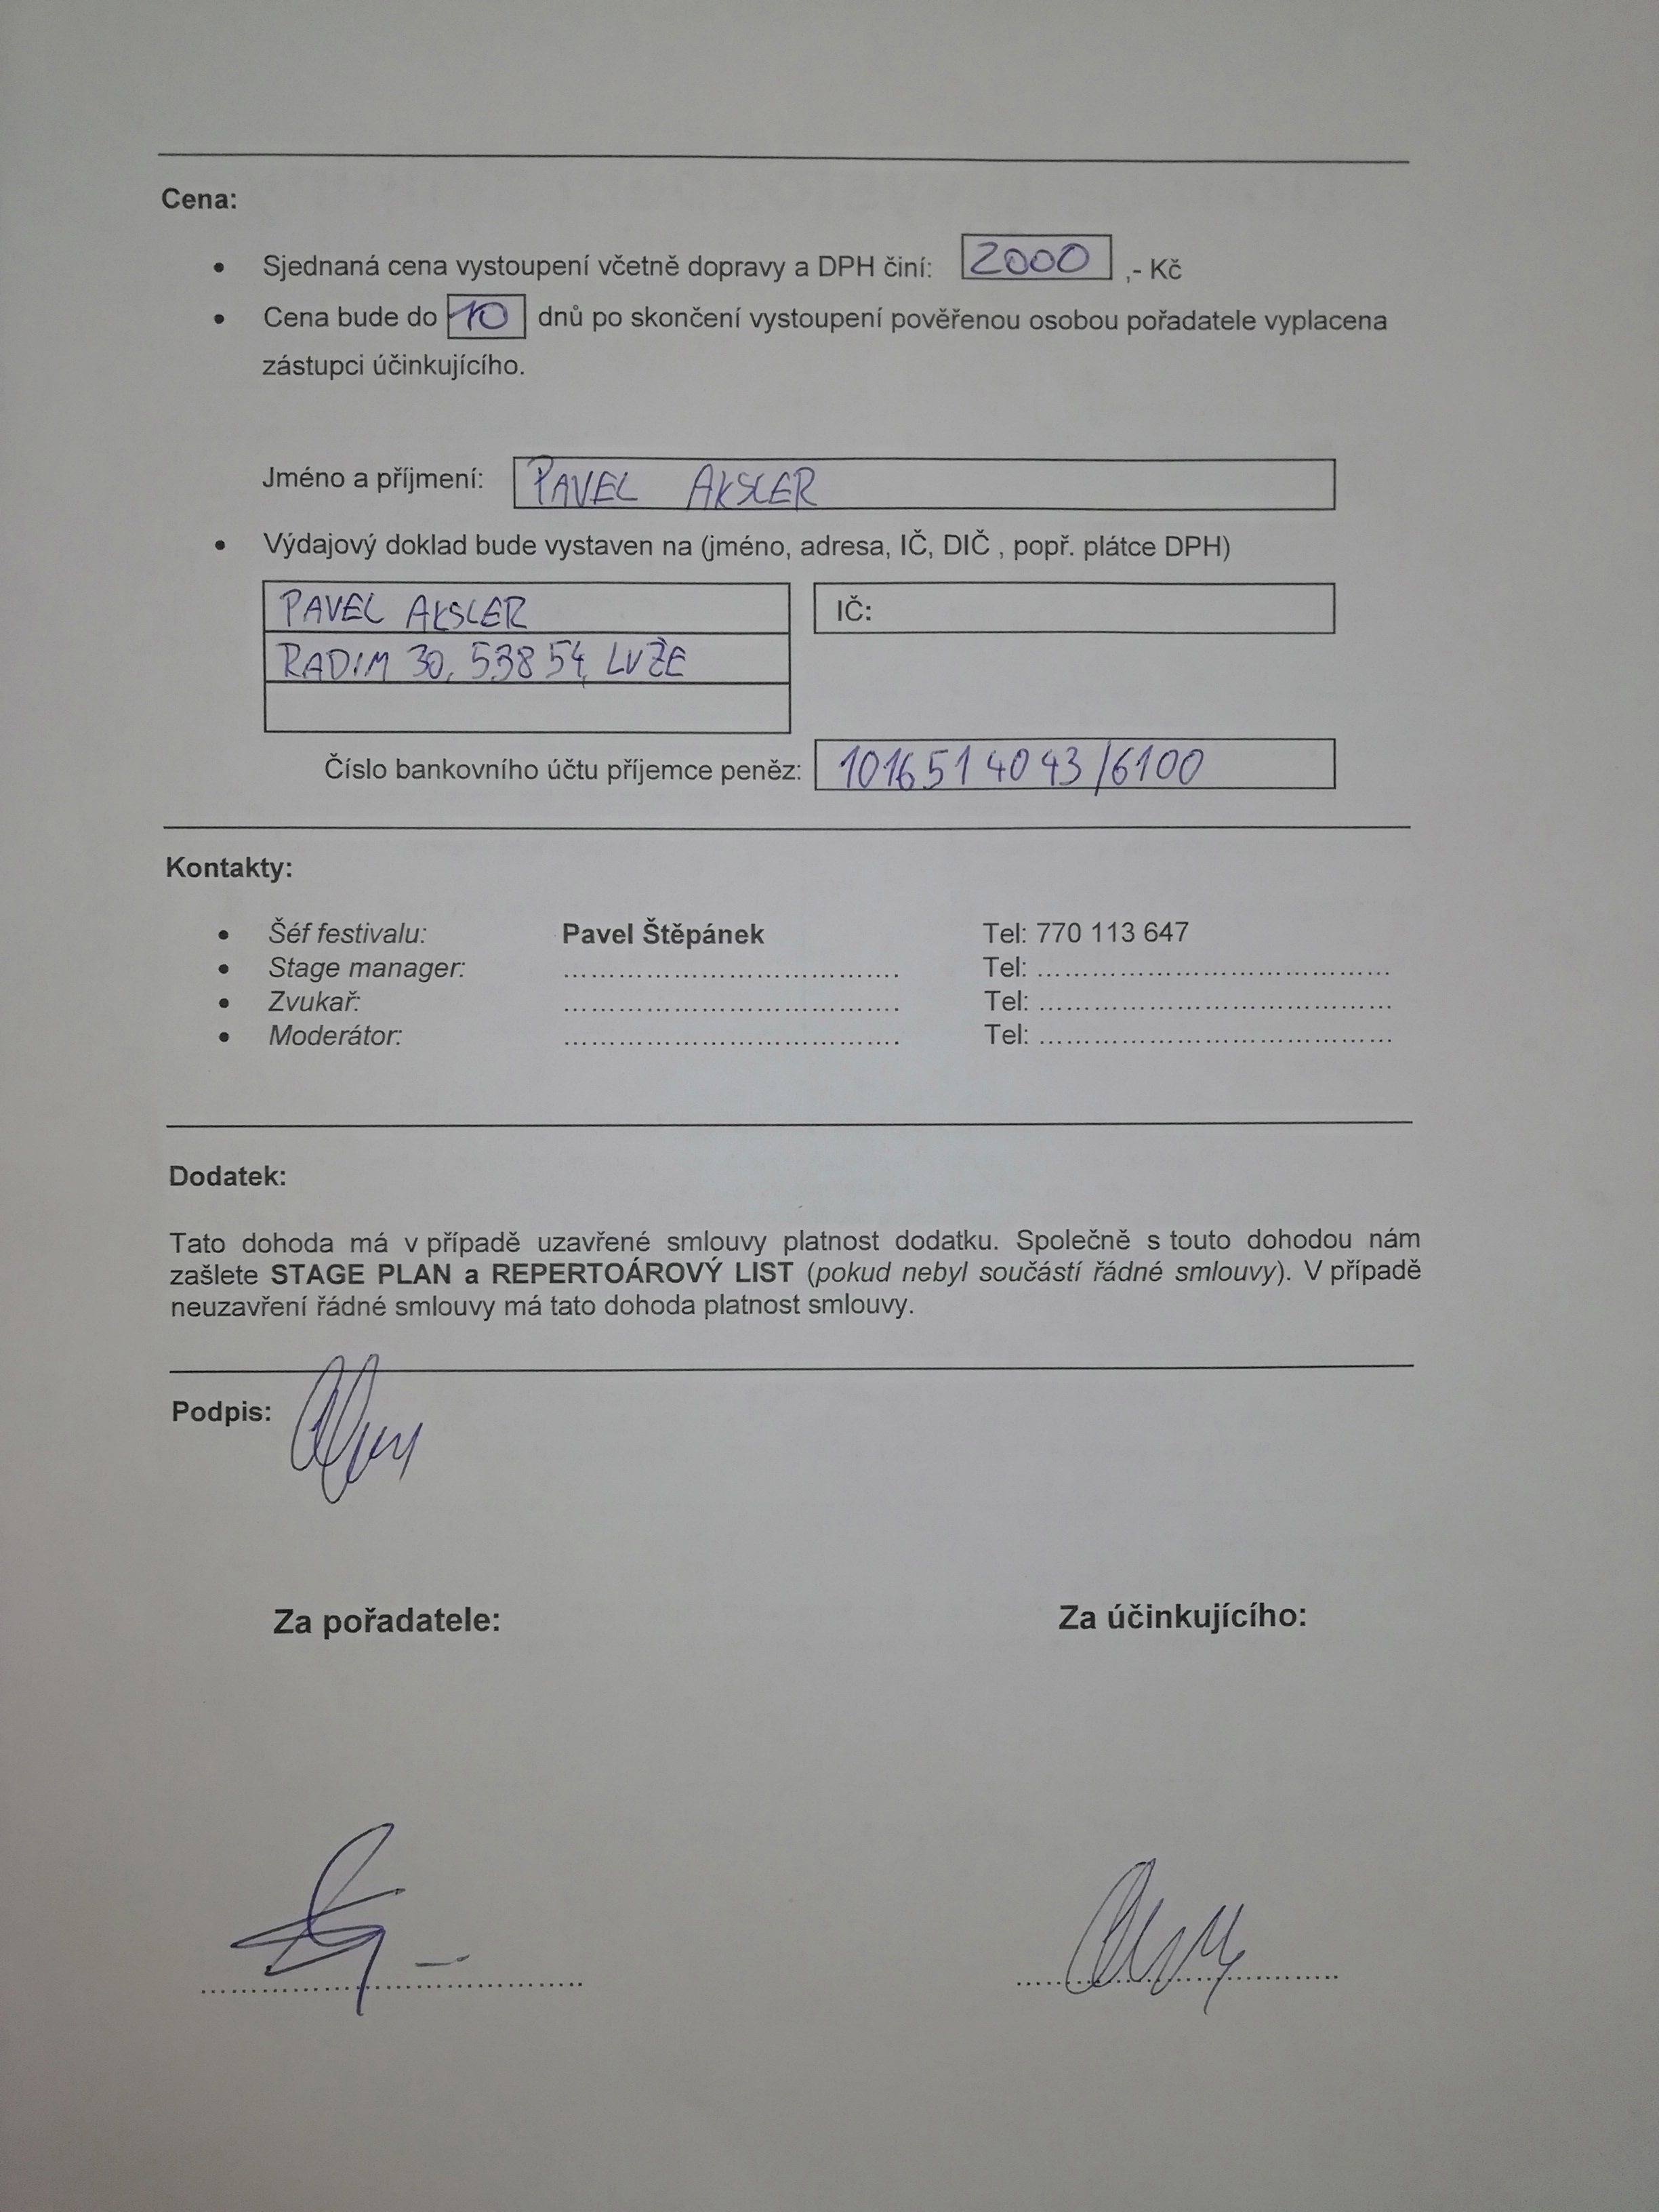 Cena:
• Sjednaná cena vystoupení včetně dopravy a DPH činí: 2000 ,- Kč
• Cena bude do 10 dnů po skončení vystoupení pověřenou osobou pořadatele vyplacena
zástupci účinkujícího.
Jméno a příjmení: PAVEL AKSLER
• Výdajový doklad bude vystaven na (jméno, adresa, IČ, DIČ , popř. plátce DPH)
PAVEL AKSLER IČ:
RADIM 30, 538 54, LUŽE
Číslo bankovního účtu příjemce peněz: 1016514043/6100
Kontakty:
• Šéf festivalu: Pavel Štěpánek Tel: 770 113 647
• Stage manager: ........................................ Tel: ........................................
• Zvukař: ........................................ Tel: ........................................
• Moderátor: ........................................ Tel: ........................................
Dodatek:
Tato dohoda má v případě uzavřené smlouvy platnost dodatku. Společně s touto dohodou nám
zašlete STAGE PLAN a REPERTOÁROVÝ LIST (pokud nebyl součástí řádné smlouvy). V případě
neuzavření řádné smlouvy má tato dohoda platnost smlouvy.
Podpis:
Za pořadatele: Za účinkujícího: